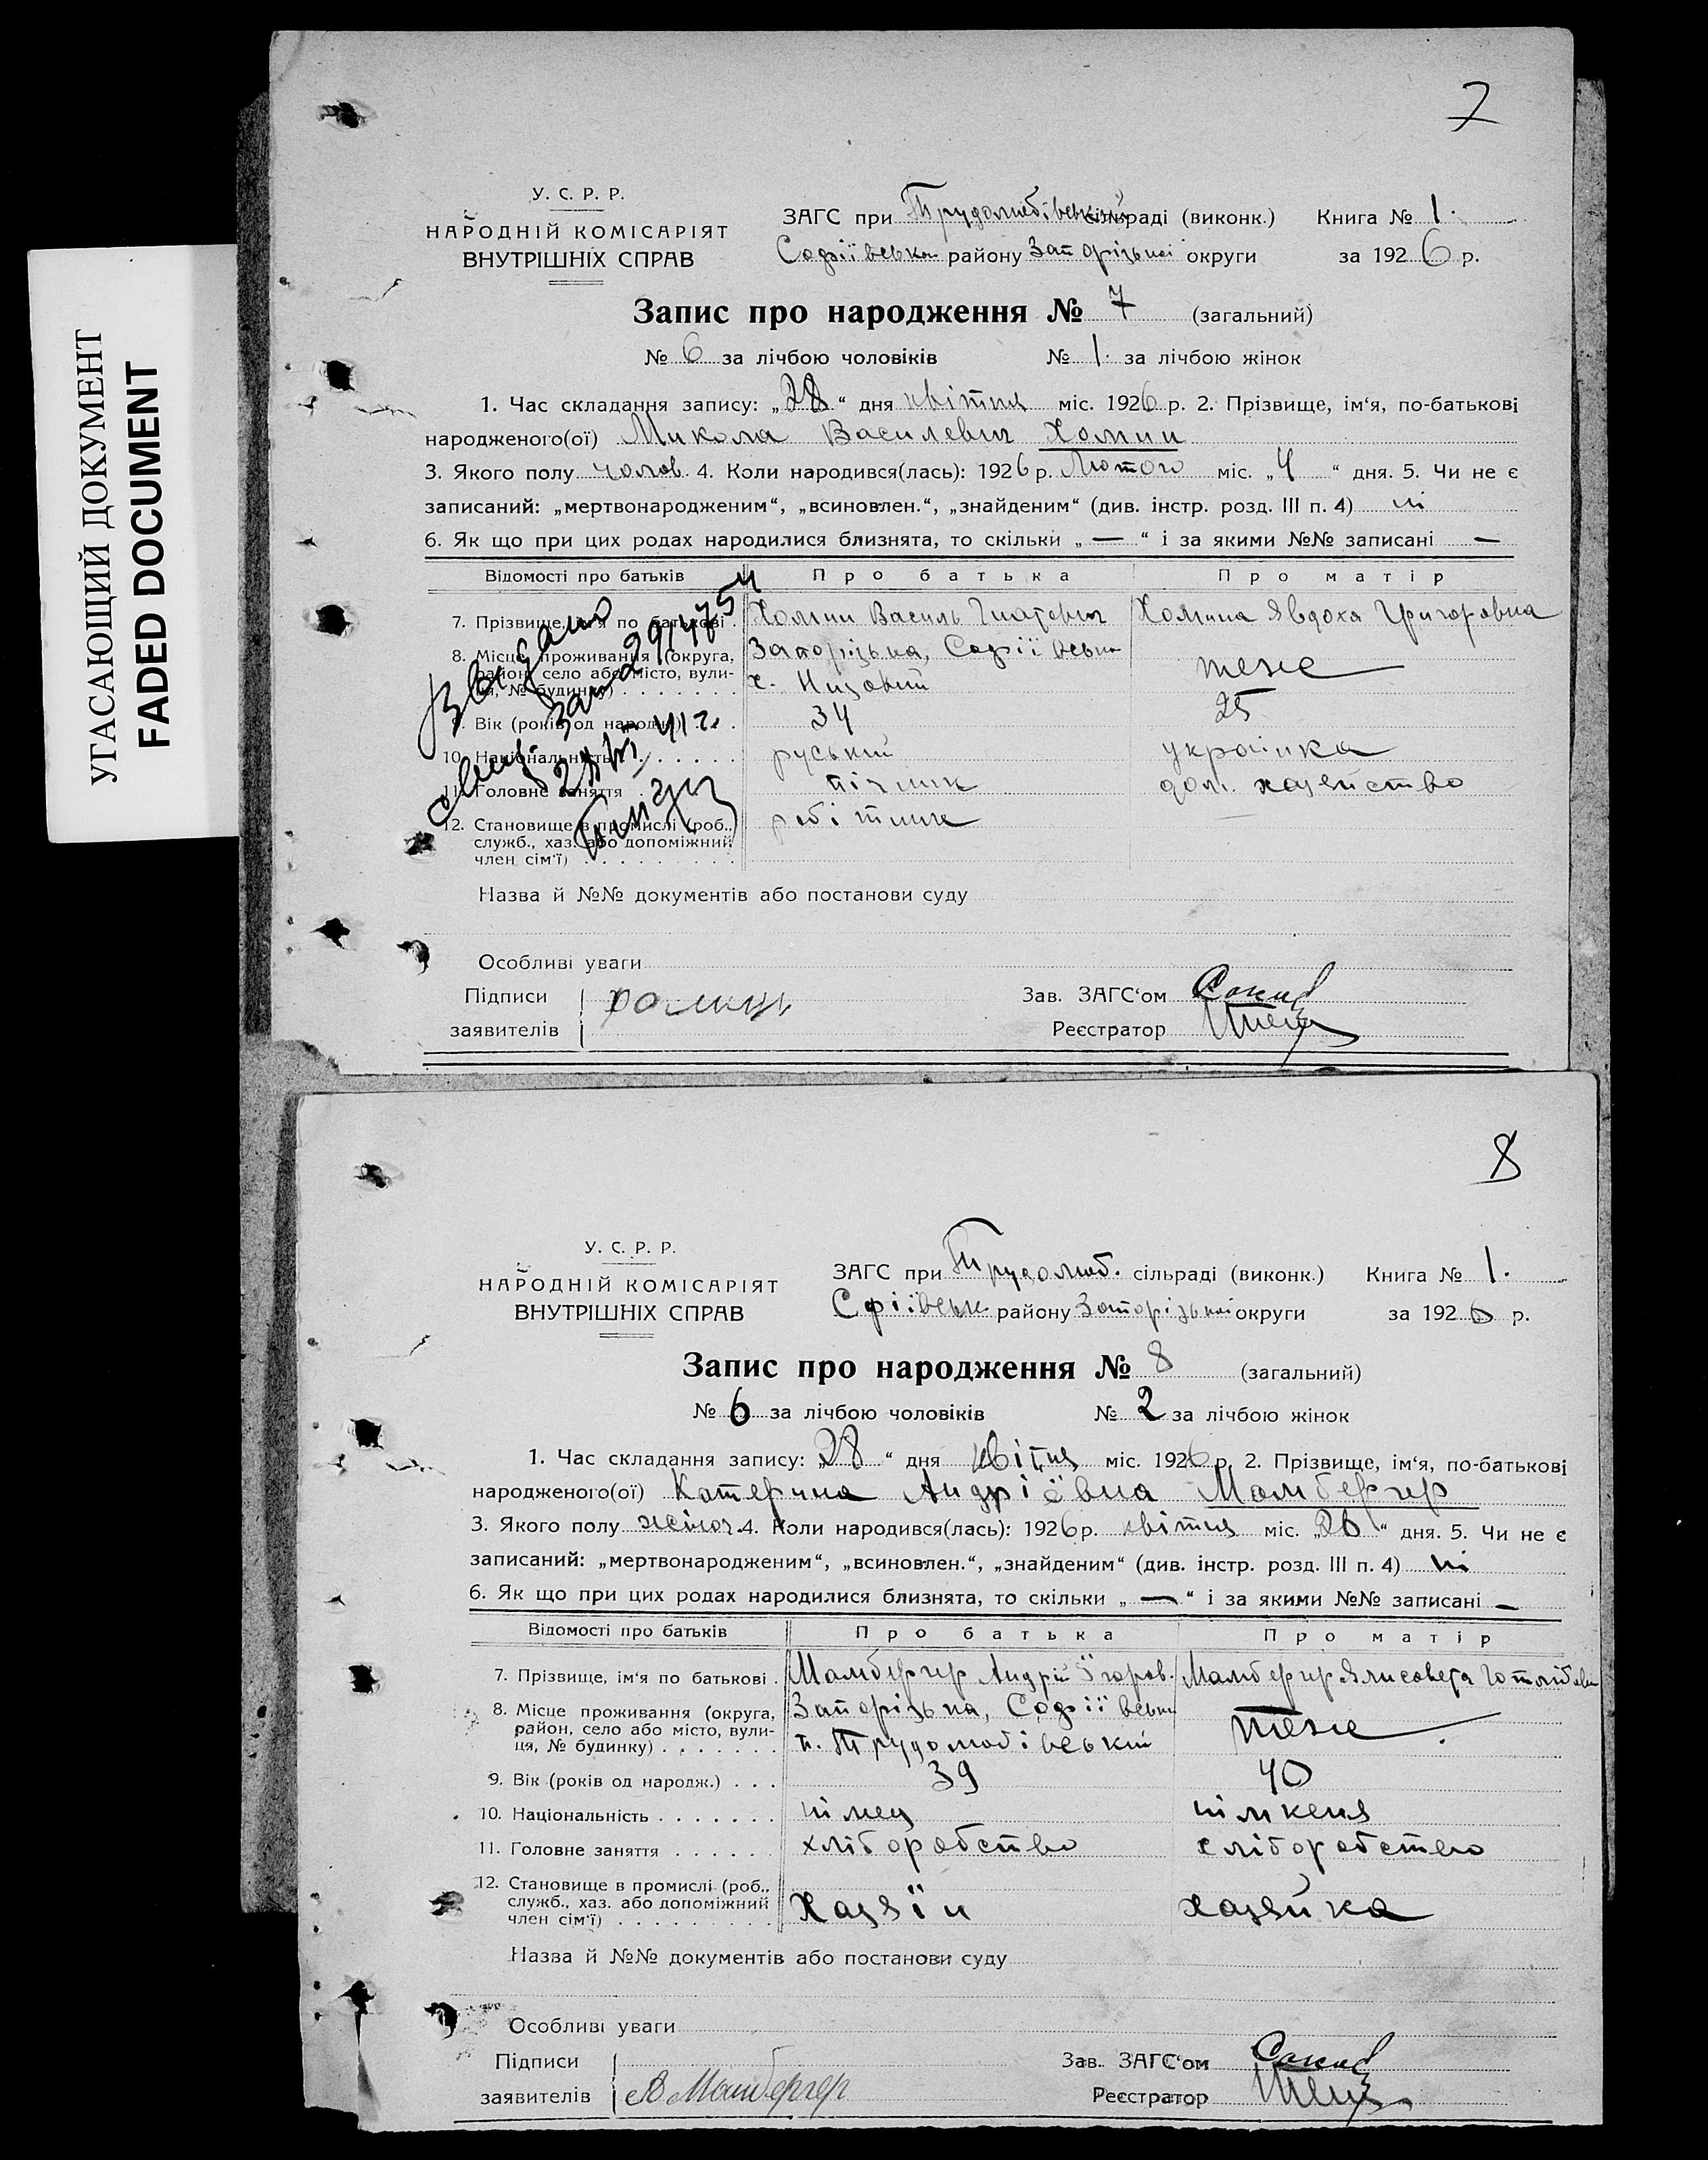 УГАСАЮЩИЙ ДОКУМЕНТ
FADED DOCUMENT
7
У. С. Р. Р.
НАРОДНІЙ КОМІСАРІЯТ
ВНУТРІШНІХ СПРАВ
ЗАГС при Трудолюбівській сільраді (виконк.) Книга № 1.
Софіївськ району Запорізької округи за 1926 р.
Запис про народження № 7 (загальний)
№ 6 за лічбою чоловіків № 1. за лічбою жінок
1. Час складання запису: „28“ дня квітня міс. 1926 р. 2. Прізвище, ім‘я, по-батькові
народженого(ої) Микола Василевич Хомин
3. Якого полу чолов. 4. Коли народився(лась): 1926 р. Лютого міс. „4“ дня. 5. Чи не є
записаний: „мертвонародженим“, „всиновлен.“, „знайденим“ (див. інстр. розд. III п. 4) ні
6. Як що при цих родах народилися близнята, то скільки „—“ і за якими №№ записані —
Відомості про батьків Про батька Про матір
7. Прізвище, ім‘я по батькові . Хомин Василь Хомина Явдоха Григоровна
8. Місце проживання (округа, район, село або місто, вулиця, № будинку) Запорізька, Софіївськ
х. теж
9. Вік (років од народж.) 34 25
10. Національність руський українка
11. Головне заняття дом. хозяйство
12. Становище в промислі (роб., служб., хаз. або допоміжний член сім‘ї) робітник
Видано
Назва й №№ документів або постанови суду
Особливі уваги
Підписи
заявителів
Зав. ЗАГС‘ом
Реєстратор
8
У. С. Р. Р.
НАРОДНІЙ КОМІСАРІЯТ
ВНУТРІШНІХ СПРАВ
ЗАГС при Трудолюб. сільраді (виконк.) Книга № 1.
Сфіївськ району Запорізької округи за 1926 р.
Запис про народження № 8 (загальний)
№ 6 за лічбою чоловіків № 2 за лічбою жінок
1. Час складання запису: „28“ дня квітня міс. 1926 р. 2. Прізвище, ім‘я, по-батькові
народженого(ої) Катерина Андріївна Мамбергер
3. Якого полу жіноч. 4. Коли народився(лась): 1926 р. квітня міс. „26“ дня. 5. Чи не є
записаний: „мертвонародженим“, „всиновлен.“, „знайденим“ (див. інстр. розд. III п. 4) ні
6. Як що при цих родах народилися близнята, то скільки „—“ і за якими №№ записані —
Відомості про батьків Про батька Про матір
7. Прізвище, ім‘я по батькові . Мамбергер Андрій Мамбергер Єлисовета
8. Місце проживання (округа,
район, село або місто, вули-
ця, № будинку) Запорізька, Софіївськ
Трудолюбівський теж
9. Вік (років од народж.) 39 40
10. Національність німец німкеня
11. Головне заняття хліборобство хліборобство
12. Становище в промислі (роб.,
служб., хаз. або допоміжний
член сім‘ї) Хазяїн хазяйка
Назва й №№ документів або постанови суду
Особливі уваги
Підписи
заявителів А Мамбергер
Зав. ЗАГС‘ом
Реєстратор